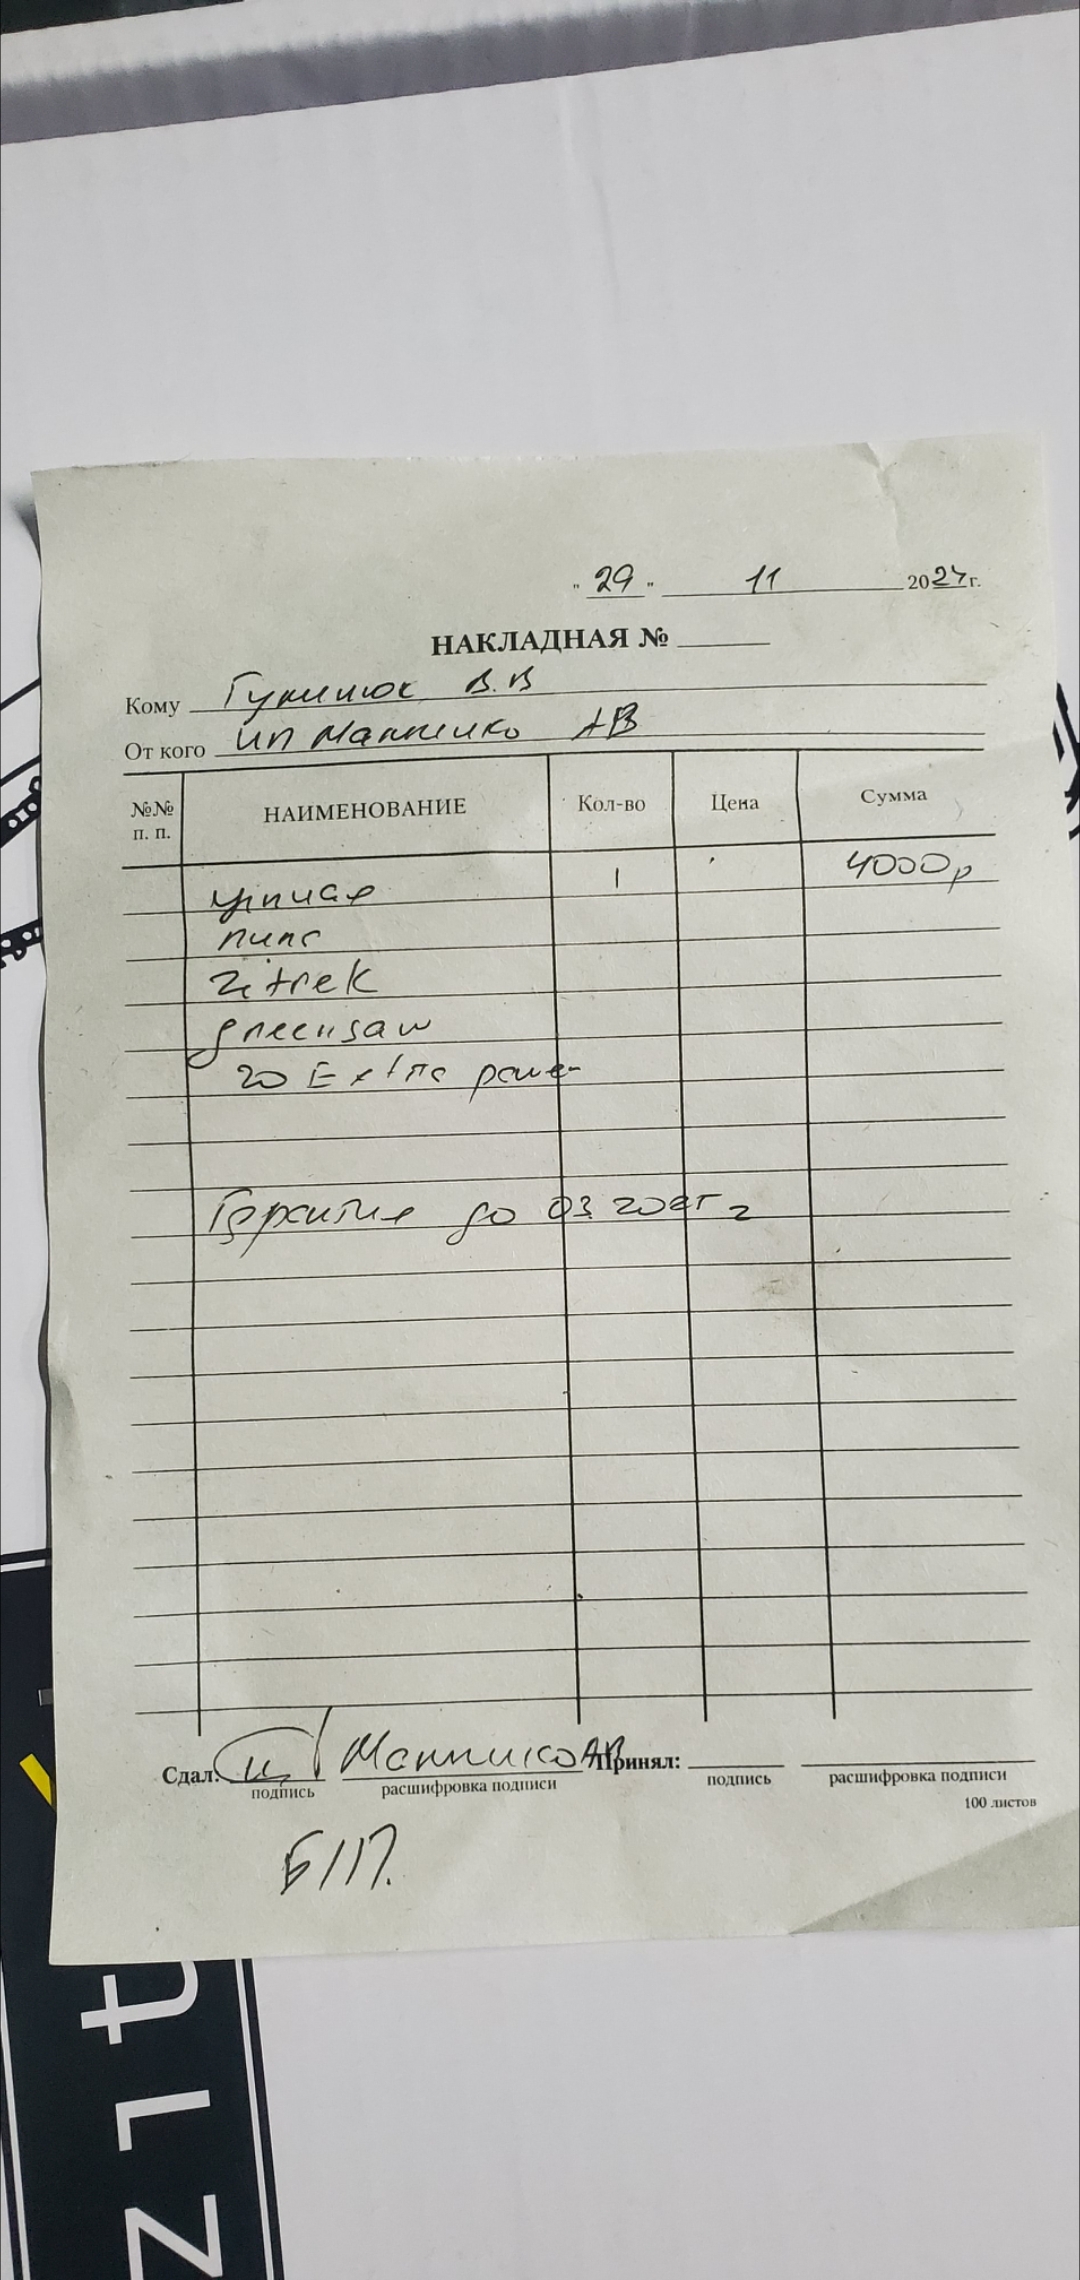 " 29 " 11 2024 г.
НАКЛАДНАЯ №
Кому В.В
От кого ИП АВ
№№ п. п. НАИМЕНОВАНИЕ Кол-во Цена Сумма
цепная 1 4000р
пила
Zitrek
greensaw
20 Extra power
Гарантия до 03.2025 г
Сдал: Принял:
подпись расшифровка подписи подпись расшифровка подписи
100 листов
Б/П.
zit